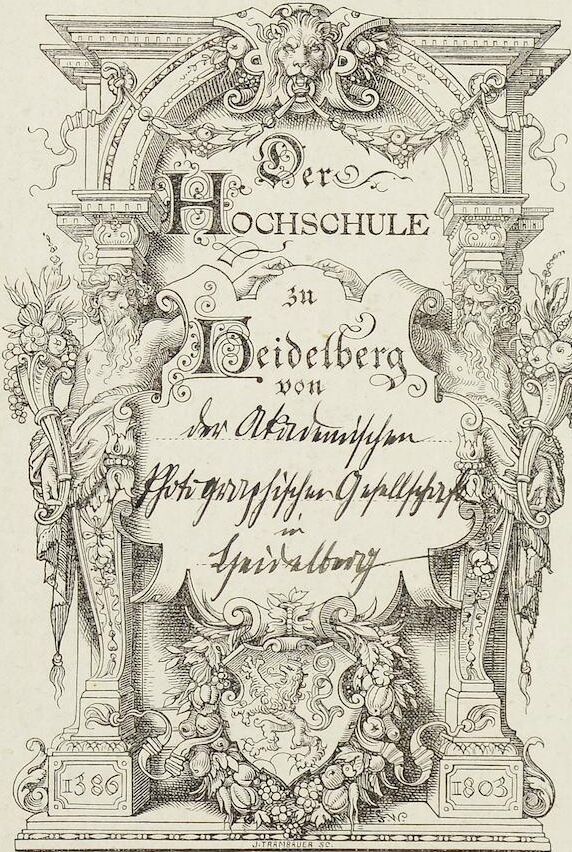 Der
HOCHSCHULE
zu
Heidelberg
von
der Akademischen
Photographischen Gesellschaft
in
Heidelberg
1386
1803
J. TRAMBAUER SC.